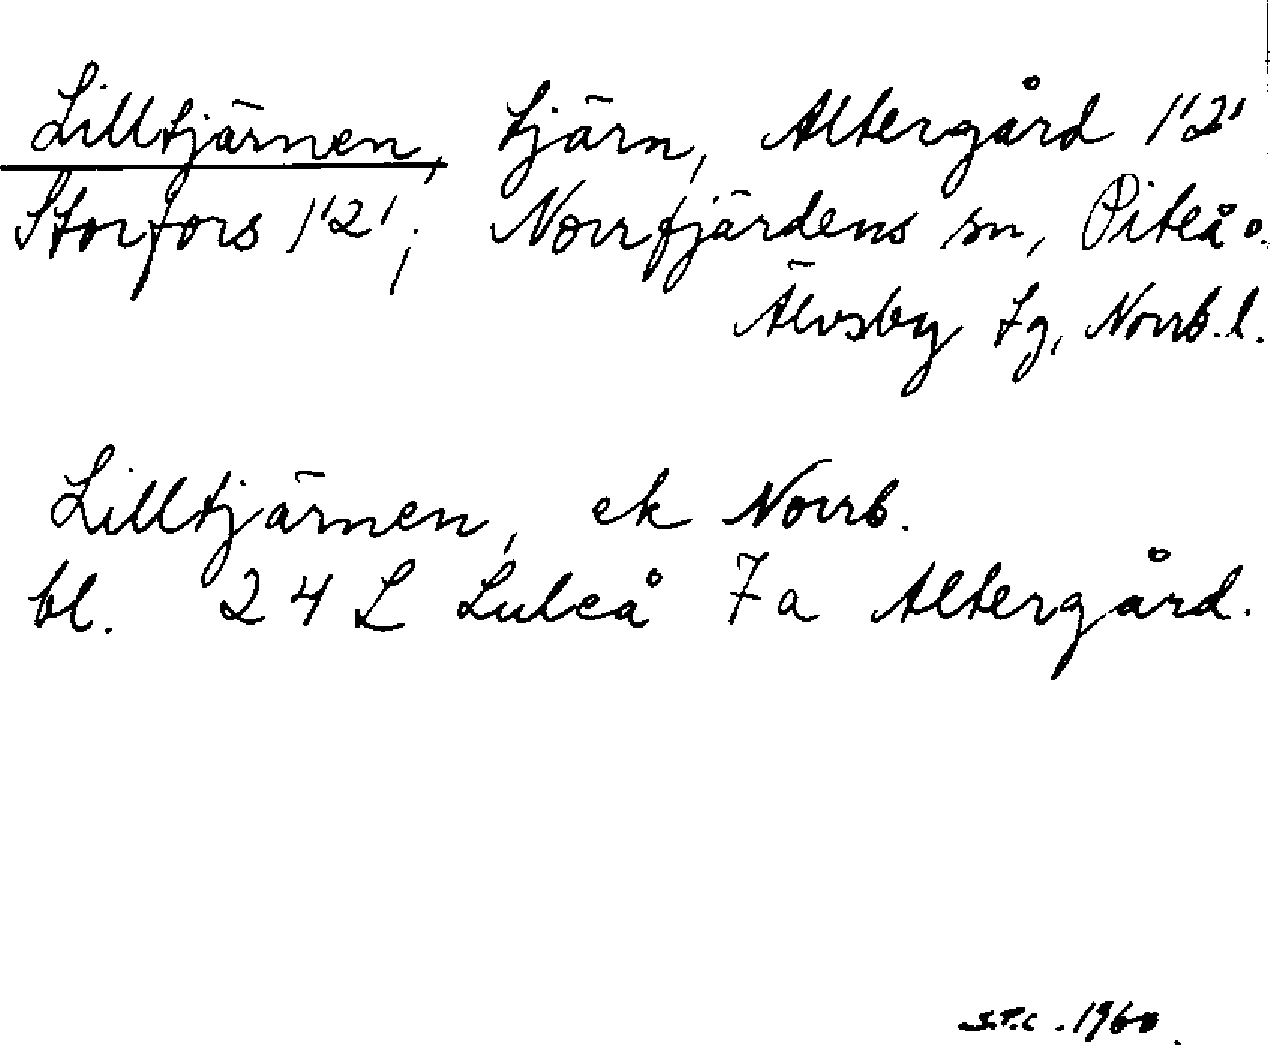 Lilltjärnen, tjärn, Altergård 1'2'
Storfors 1'2'; Norrfjärdens sn, Piteå o.
Älvsby tg, Norrb. l.
Lilltjärnen, ek Norrb.
bl. 24 L Luleå 7a Altergård.
S.T.C. 1960.